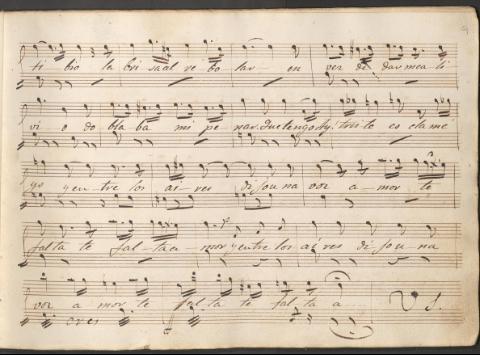 ti bio la bri sa al re bo lar - en per di dar me a li
vi - o do bla ba mi pe nar. Que tengo hay! triste es cla mé
yo y en - tre los ai - res di so u na voz a - mor te
fal ta te fal - ta a - mor y entre los ai res di so - u na
voz a - mor te fal - ta te fal - ta a
eres V. S.